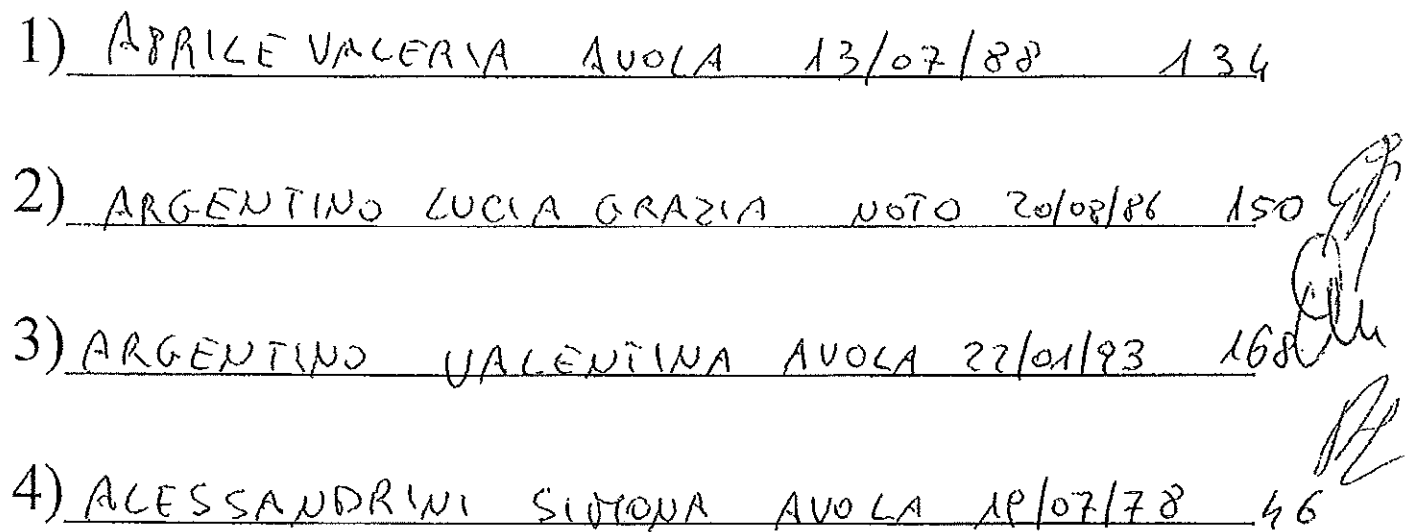 1) ABRILE VALERIA AVOLA 13/07/88 134
2) ARGENTINO LUCIA GRAZIA NOTO 20/08/86 150
3) ARGENTINO VALENTINA AVOLA 22/01/93 168
4) ALESSANDRINI SIMONA AVOLA 46